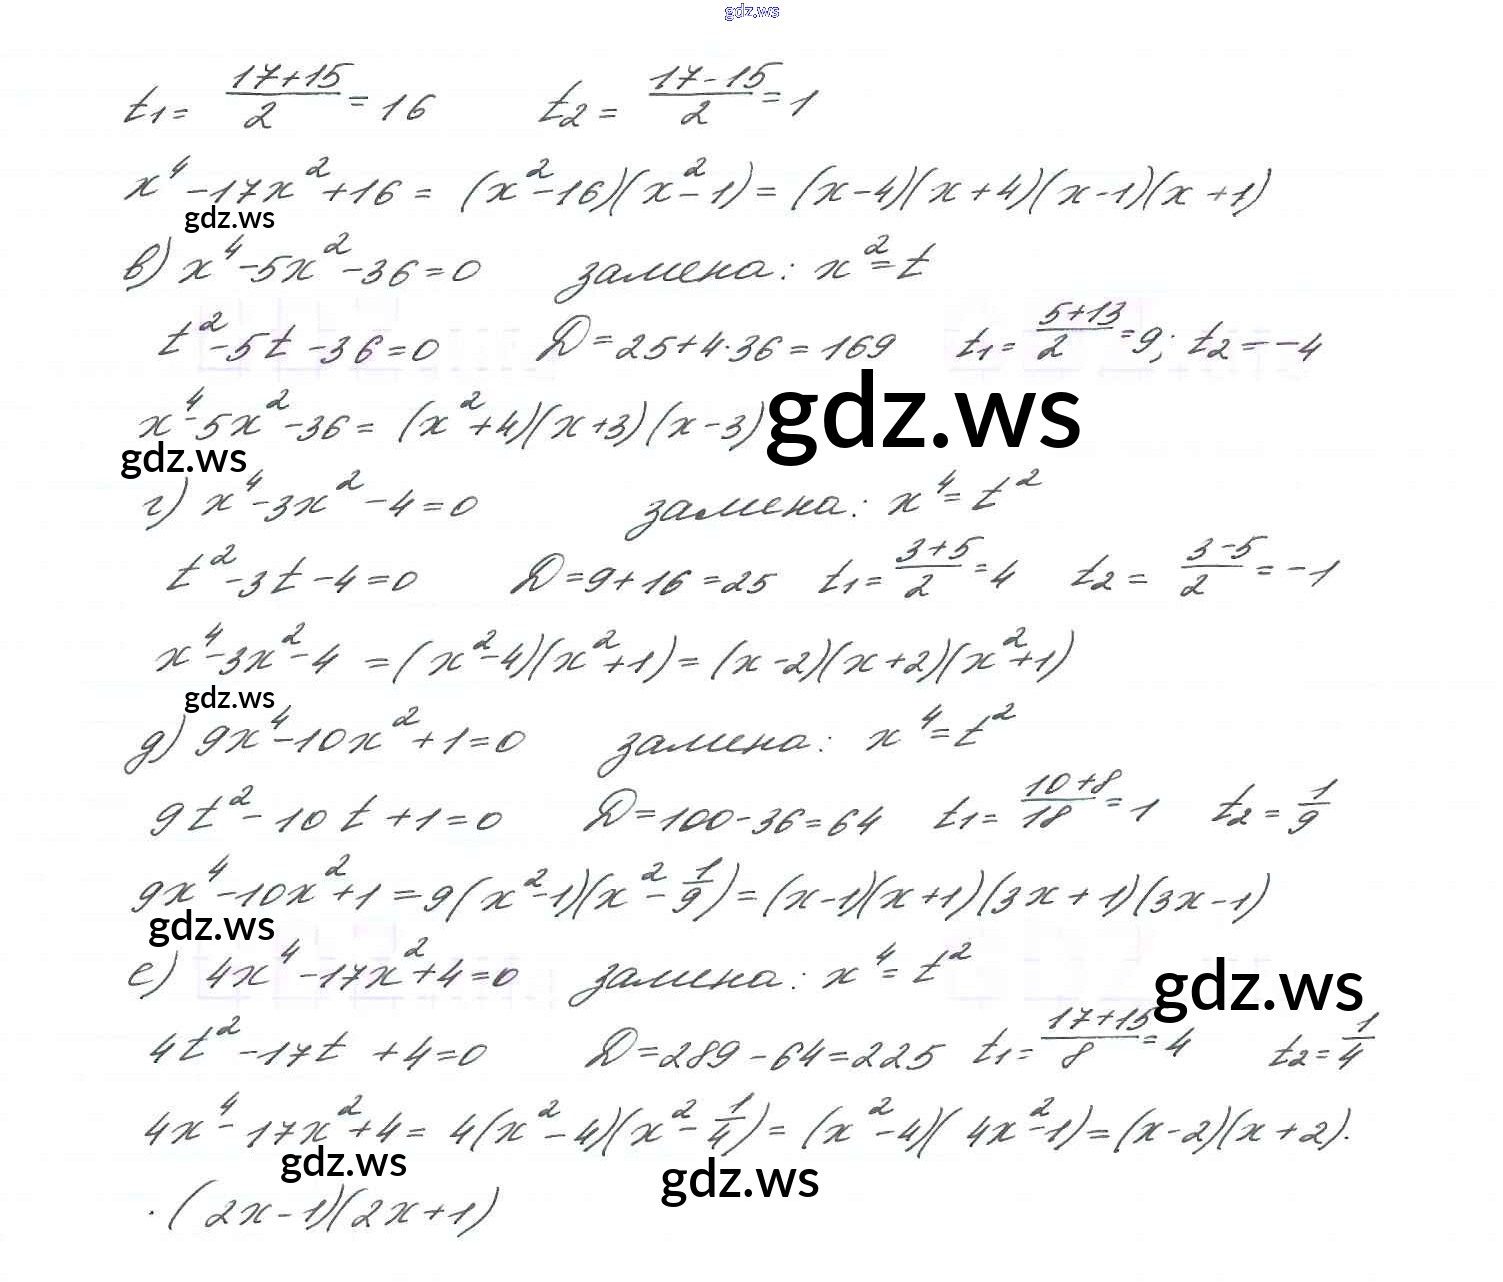 gdz.ws
t₁ = (17+15)/2 = 16    t₂ = (17-15)/2 = 1
x⁴ - 17x² + 16 = (x² - 16)(x² - 1) = (x - 4)(x + 4)(x - 1)(x + 1)
gdz.ws
в) x⁴ - 5x² - 36 = 0    замена: x² = t
t² - 5t - 36 = 0    D = 25 + 4·36 = 169    t₁ = (5+13)/2 = 9; t₂ = -4
x⁴ - 5x² - 36 = (x² + 4)(x + 3)(x - 3)
gdz.ws
gdz.ws
г) x⁴ - 3x² - 4 = 0    замена: x⁴ = t²
t² - 3t - 4 = 0    D = 9 + 16 = 25    t₁ = (3+5)/2 = 4    t₂ = (3-5)/2 = -1
x⁴ - 3x² - 4 = (x² - 4)(x² + 1) = (x - 2)(x + 2)(x² + 1)
gdz.ws
д) 9x⁴ - 10x² + 1 = 0    замена: x⁴ = t²
9t² - 10t + 1 = 0    D = 100 - 36 = 64    t₁ = (10+8)/18 = 1    t₂ = 1/9
9x⁴ - 10x² + 1 = 9(x² - 1)(x² - 1/9) = (x - 1)(x + 1)(3x + 1)(3x - 1)
gdz.ws
е) 4x⁴ - 17x² + 4 = 0    замена: x⁴ = t²
gdz.ws
4t² - 17t + 4 = 0    D = 289 - 64 = 225    t₁ = (17+15)/8 = 4    t₂ = 1/4
4x⁴ - 17x² + 4 = 4(x² - 4)(x² - 1/4) = (x² - 4)(4x² - 1) = (x - 2)(x + 2)·
gdz.ws
gdz.ws
·(2x - 1)(2x + 1)